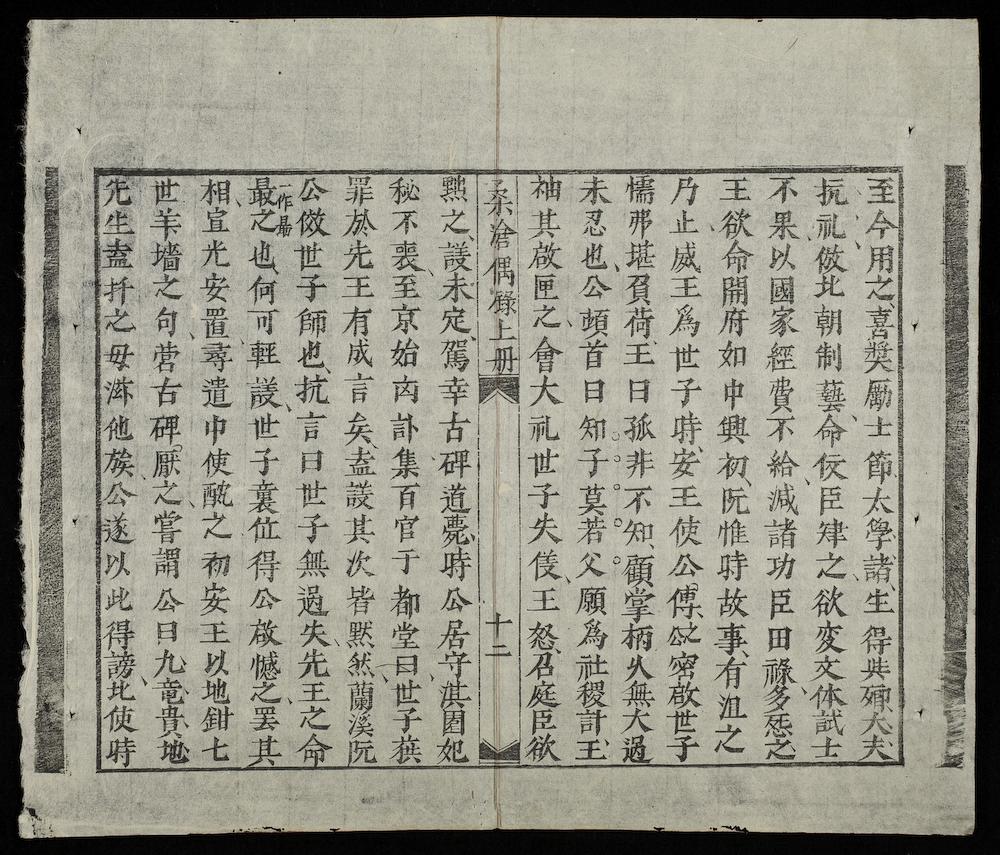 至今用之、喜獎勵士節、太學諸生得與卿大夫
抗礼、倣北朝制藝、命佞臣肄之、欲変文体試士
不果、以國家經費不給、減諸功臣田祿、多㤪之
王欲命開府如中興初、阮惟時故事、有沮之
乃止、威王爲世子時、安王使公傅之、公密啟世子
懦弗堪負荷、王曰孤非不知、顧掌柄火無大過
未忍也、公頓首曰知子莫若父、願爲社稷計、王
袖其啟匣之、會大礼世子失儀、王怒、召庭臣欲
桑滄偶錄上册 十二
黜之、議未定、駕幸古碑道薨、時公居守淇園妃
秘不喪、至京始凶訃集百官于都堂曰世子獲
罪於先王有成言矣、盍議其次皆黙然、蘭溪阮
公傚世子師也、抗言曰世子無過失先王之命
最之也、何可輕議、世子襄位得公啟憾之、罷其
一作勗
相宣光安置、尋遣中使酖之、初安王以地鉗七
世羊墻之句、营古碑厭之、嘗謂公曰九竜貴地
先生盍扞之毋滋他族、公遂以此得謗、北使時